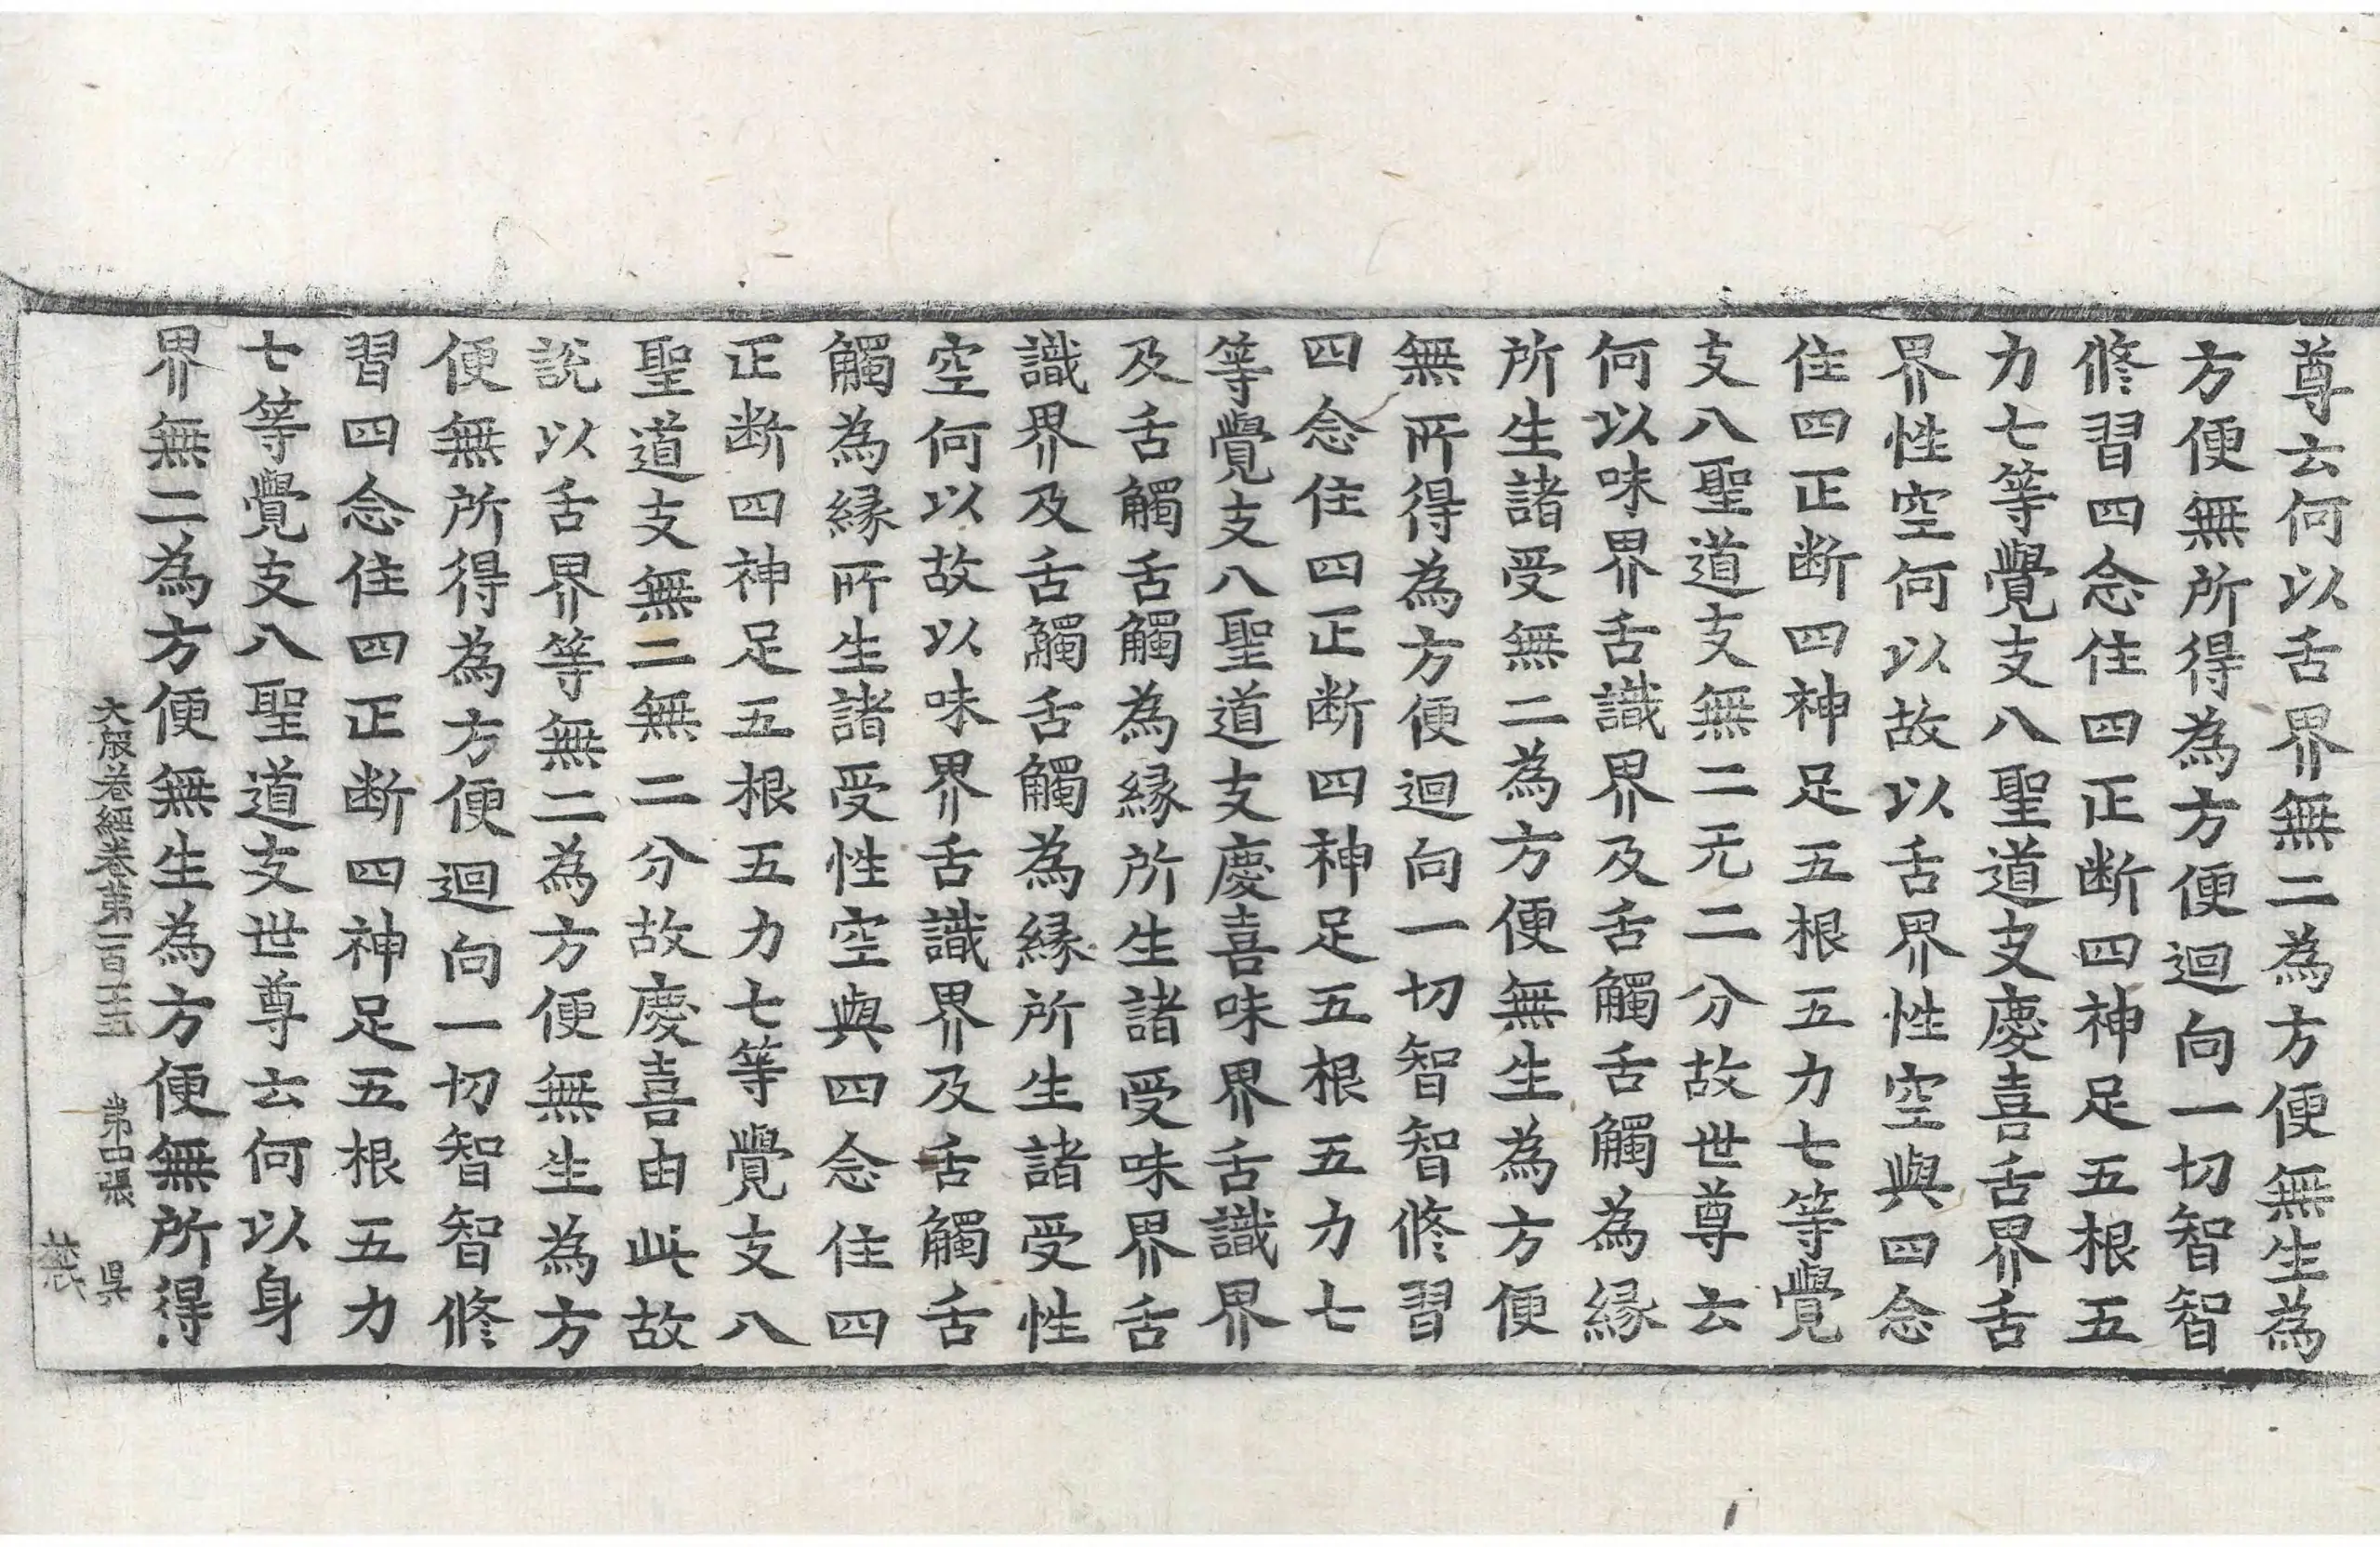 尊云何以舌界無二為方便無生為
方便無所得為方便迴向一切智智
修習四念住四正断四神足五根五
力七等覺支八聖道支慶喜舌界舌
界性空何以故以舌界性空與四念
住四正断四神足五根五力七等覺
支八聖道支無二无二分故世尊云
何以味界舌識界及舌觸舌觸為緣
所生諸受無二為方便無生為方便
無所得為方便迴向一切智智修習
四念住四正断四神足五根五力七
等覺支八聖道支慶喜味界舌識界
及舌觸舌觸為緣所生諸受味界舌
識界及舌觸舌觸為緣所生諸受性
空何以故以味界舌識界及舌觸舌
觸為緣所生諸受性空與四念住四
正断四神足五根五力七等覺支八
聖道支無二無二分故慶喜由此故
說以舌界等無二為方便無生為方
便無所得為方便迴向一切智智修
習四念住四正断四神足五根五力
七等覺支八聖道支世尊云何以身
界無二為方便無生為方便無所得
大般若經卷第一百十三 第四張 吳